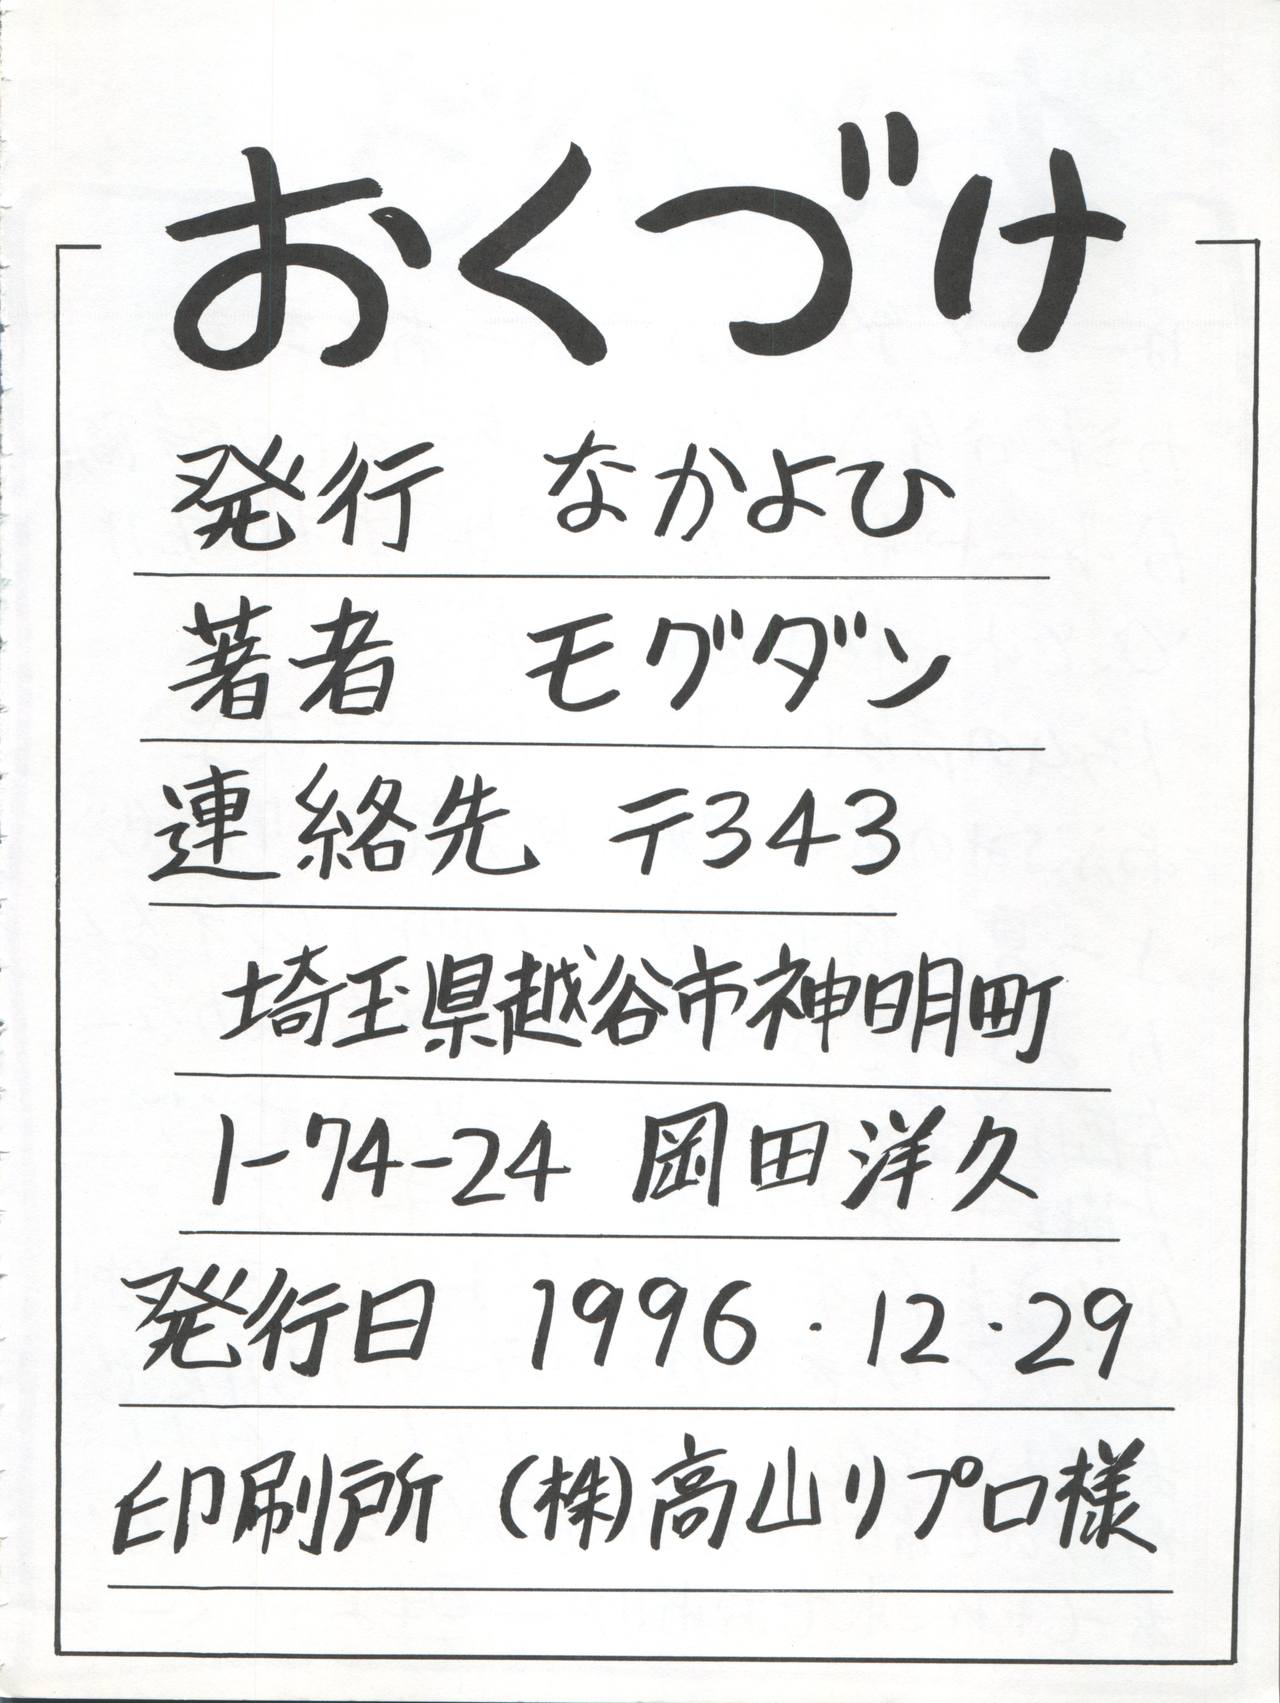 おくづけ
発行 なかよひ
著者 モグダン
連絡先 〒343
埼玉県越谷市神明町
1-74-24 岡田洋久
発行日 1996・12・29
印刷所 (株)高山リプロ様